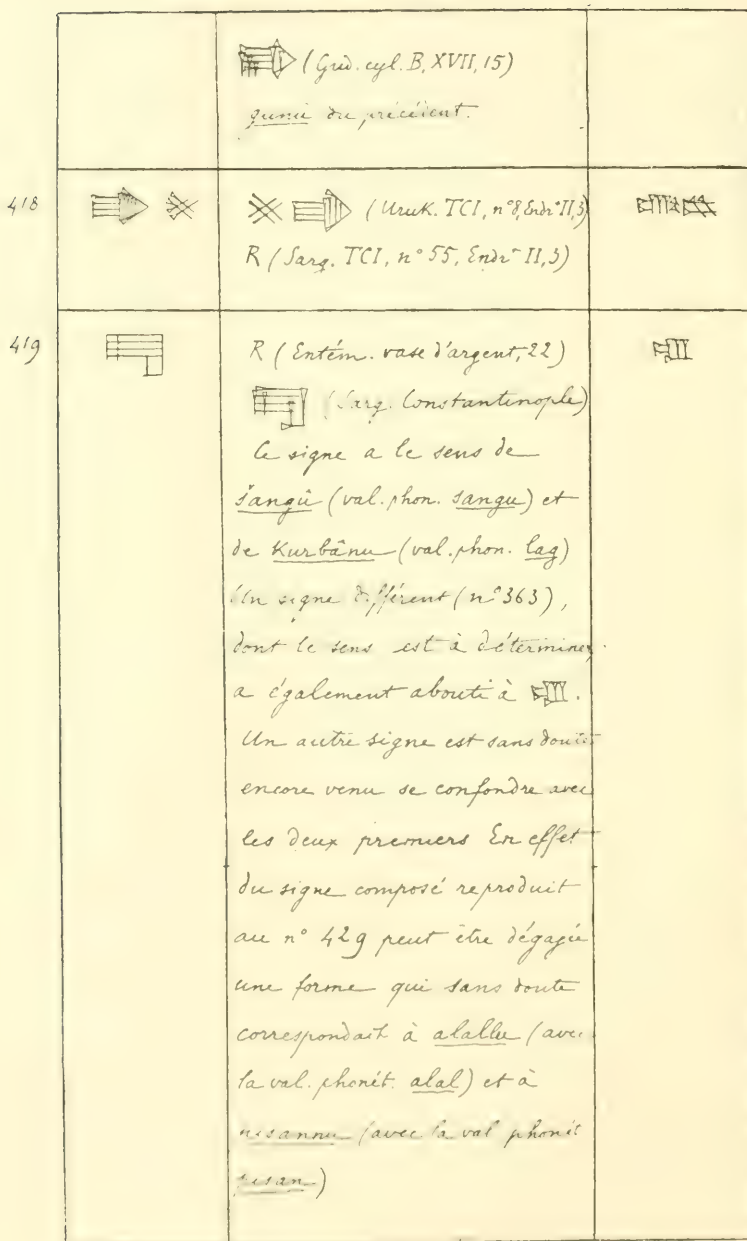 (Gud. cyl. B, XVII, 15)
gunû du précédent.
418
(Uruk. TCI, n° 8, Endrt II, 3)
R (Sarg. TCI, n° 55, Endrt II, 3)
419
R (Entém. vase d'argent, 22)
(Sarg. Constantinople)
Ce signe a le sens de
šangû (val. phon. sangu) et
de Kurbânu (val. phon. lag)
Un signe différent (n° 363),
dont le sens est à déterminer,
a également abouti à .
Un autre signe est sans doute
encore venu se confondre avec
les deux premiers En effet
du signe composé reproduit
au n° 429 peut être dégagée
une forme qui sans doute
correspondait à alallu (avec
la val. phonét. alal) et à
pisannu (avec la val phonét
pisan)